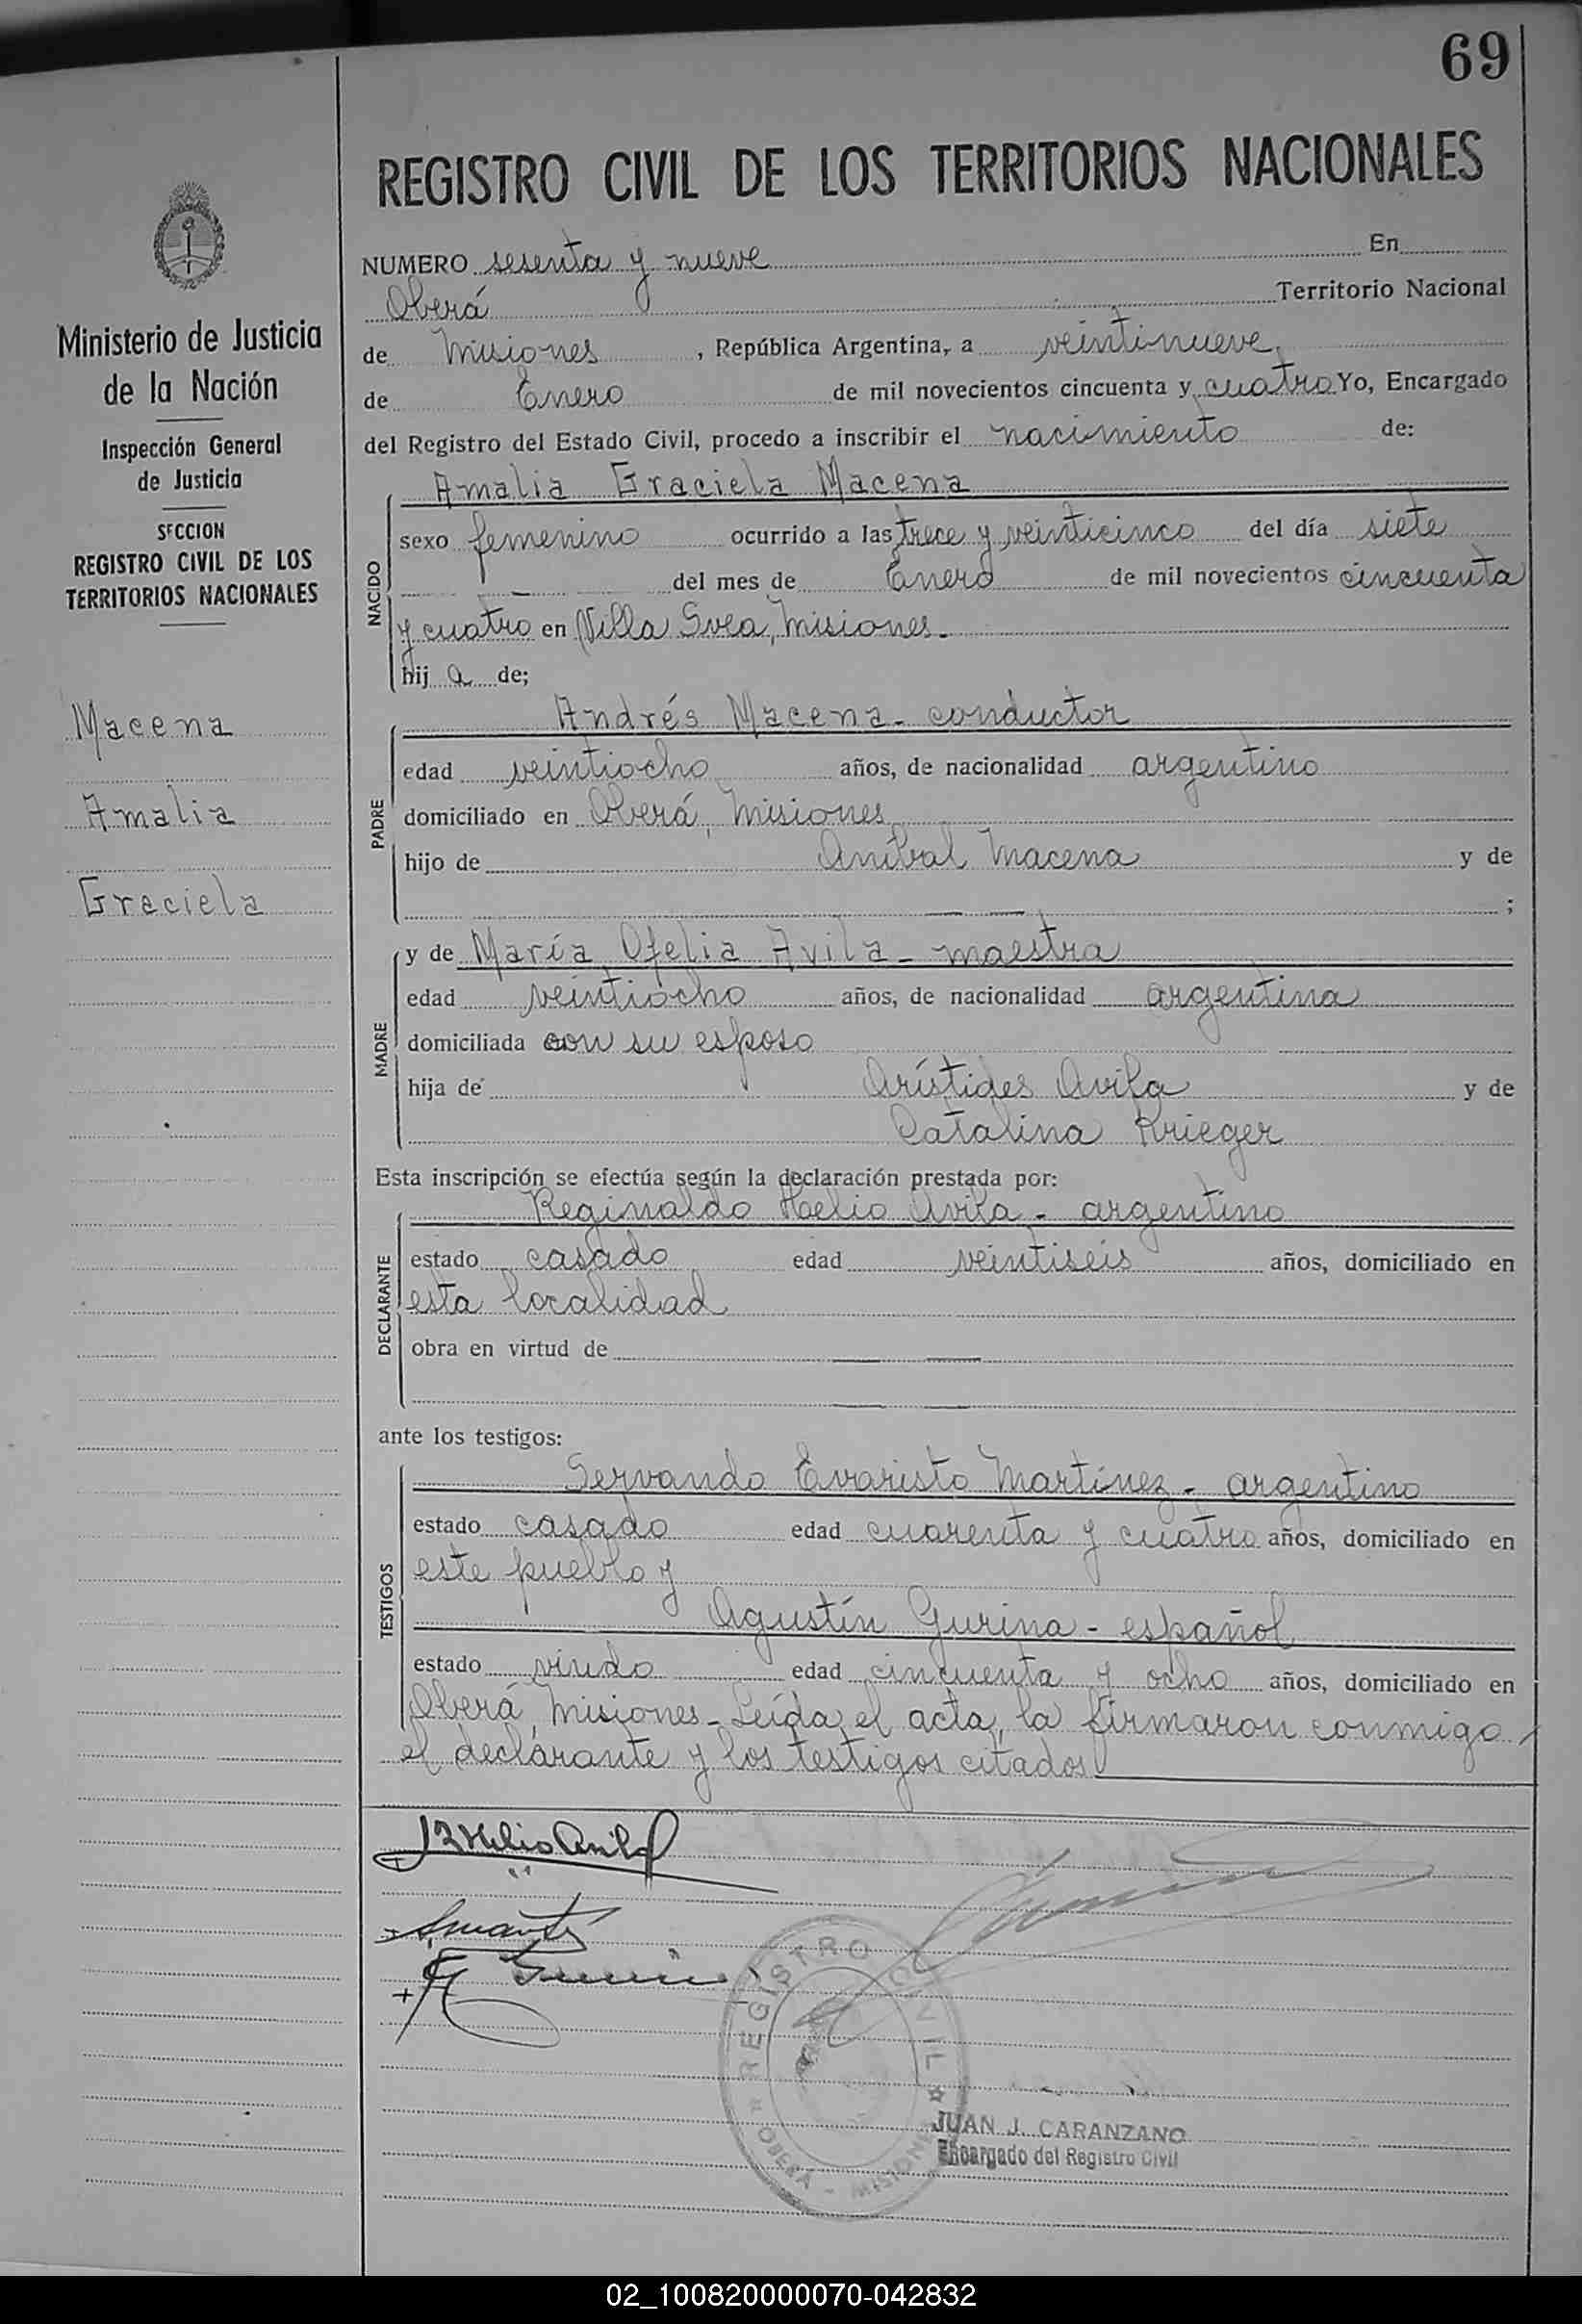 69
REGISTRO CIVIL DE LOS TERRITORIOS NACIONALES
Ministerio de Justicia
de la Nación
Inspección General
de Justicia
SECCION
REGISTRO CIVIL DE LOS
TERRITORIOS NACIONALES
Macena
Amalia
Graciela
NUMERO sesenta y nueve En
Oberá Territorio Nacional
de Misiones, República Argentina, a veintinueve
de Enero de mil novecientos cincuenta y cuatro Yo, Encargado
del Registro del Estado Civil, procedo a inscribir el nacimiento de:
NACIDO
Amalia Graciela Macena
sexo femenino ocurrido a las trece y veinticinco del día siete
— del mes de Enero de mil novecientos cincuenta
y cuatro en Villa Svea, Misiones.
hij a de;
PADRE
Andrés Macena - conductor
edad veintiocho años, de nacionalidad argentino
domiciliado en Oberá, Misiones
hijo de Aníbal Macena y de
— — ;
MADRE
y de María Ofelia Avila - maestra
edad veintiocho años, de nacionalidad argentina
domiciliada con su esposo
hija de Arístides Avila y de
Catalina Krieger
Esta inscripción se efectúa según la declaración prestada por:
DECLARANTE
Reginaldo Helio Avila - argentino
estado casado edad veintiseis años, domiciliado en
esta localidad
obra en virtud de — —
— —
ante los testigos:
TESTIGOS
Servando Evaristo Martínez - argentino
estado casado edad cuarenta y cuatro años, domiciliado en
este pueblo y
Agustín Gurina - español
estado viudo edad cincuenta y ocho años, domiciliado en
Oberá, Misiones - Leída el acta, la firmaron conmigo
el declarante y los testigos citados
R Helio Avila
REGISTRO CIVIL
OBERA - MISIONES
JUAN J. CARANZANO
Encargado del Registro Civil
02_100820000070-042832